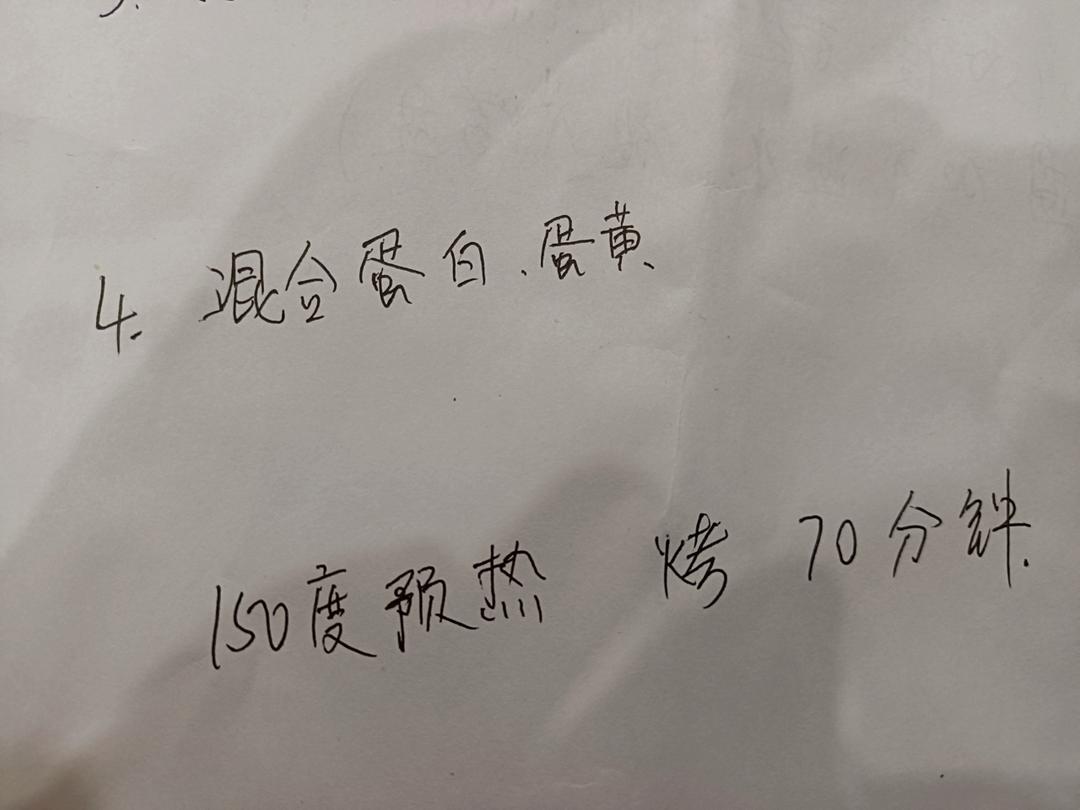 4. 混合蛋白、蛋黄、
150度预热 烤70分钟.